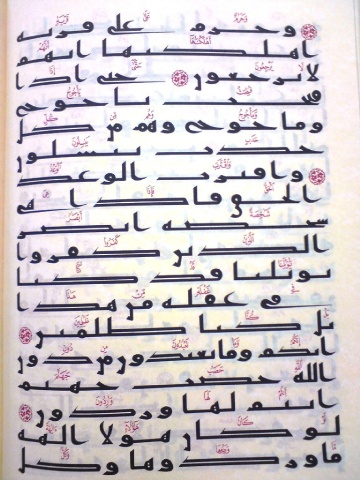 وحرم على قرية
اهلكنها انهم
لا يرجعون حتى اذا
فتحت ياجوج
وماجوج وهم من كل
حدب ينسلون
واقترب الوعد
الحق فاذا هى
شخصة ابصر
الذين كفروا
يويلنا قد كنا
فى غفلة من هذا
بل كنا ظلمين
انكم وما تعبدون من دون
الله حصب جهنم
انتم لها وردون
لو كان هولا الهة
ما وردوها وكل